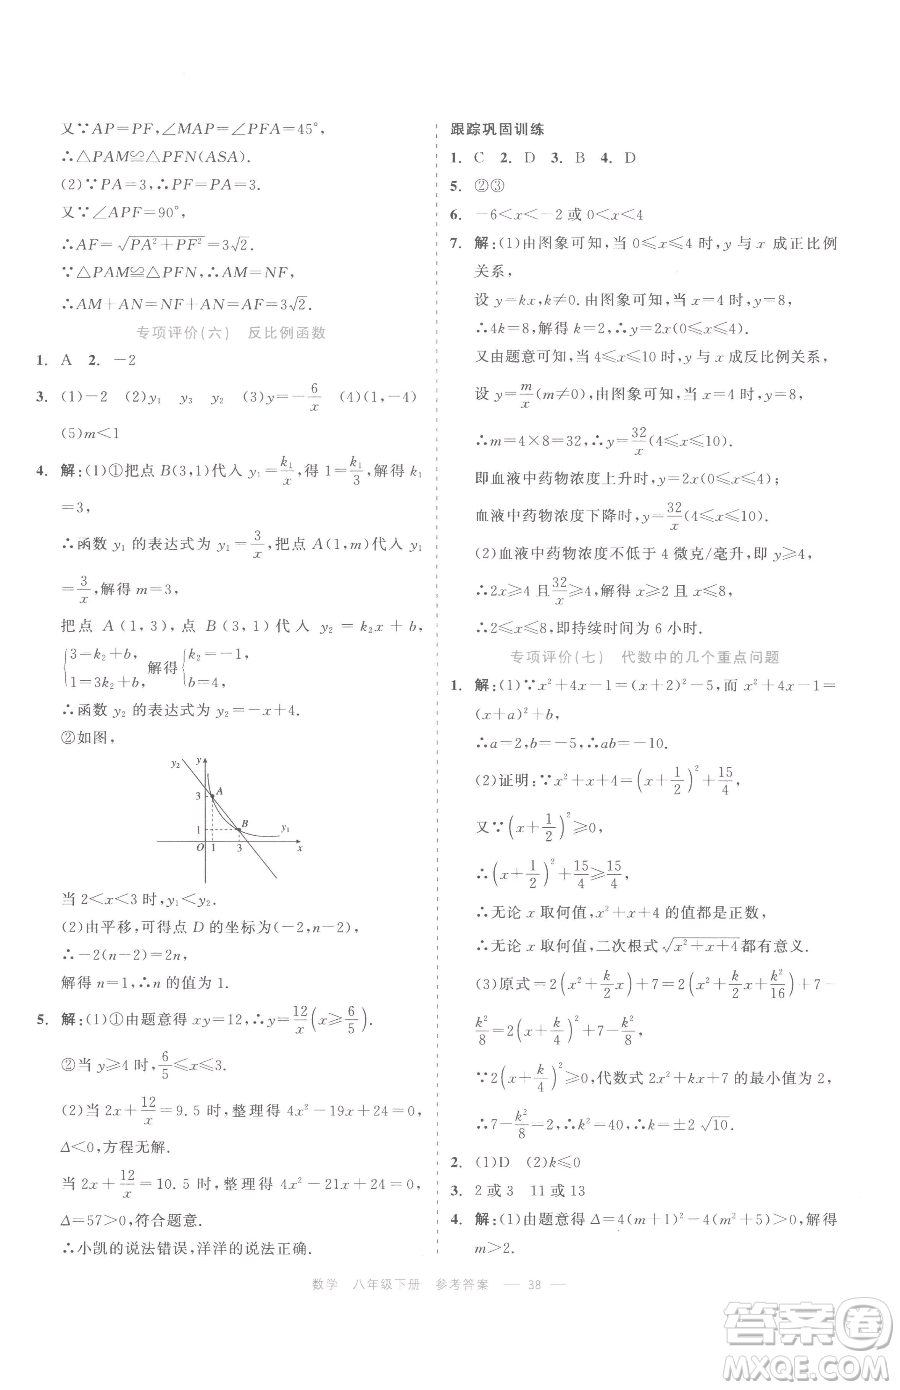 又∵AP=PF,∠MAP=∠PFA=45°,
∴△PAM≌△PFN(ASA).
(2)∵PA=3,∴PF=PA=3.
又∵∠APF=90°,
∴AF=√(PA²+PF²)=3√2.
∵△PAM≌△PFN,∴AM=NF.
∴AM+AN=NF+AN=AF=3√2.
专项评价(六) 反比例函数
1. A 2. -2
3. (1)-2 (2)y₁ y₃ y₂ (3)y=-6/x (4)(1,-4)
(5)m<1
4. 解:(1)①把点B(3,1)代入y₁=k₁/x,得1=k₁/3,解得k₁
=3,
∴函数y₁的表达式为y₁=3/x,把点A(1,m)代入y₁
=3/x,解得m=3,
把点A(1,3),点B(3,1)代入y₂=k₂x+b,
{3=k₂+b, 1=3k₂+b. 解得{k₂=-1, b=4.
∴函数y₂的表达式为y₂=-x+4.
②如图,
y₂ y
3 A
1 B y₁
O 1 3 x
当2<x<3时,y₁<y₂.
(2)由平移,可得点D的坐标为(-2,n-2),
∴-2(n-2)=2n,
解得n=1,∴n的值为1.
5. 解:(1)①由题意得xy=12,∴y=12/x(x≥6/5).
②当y≥4时,6/5≤x≤3.
(2)当2x+12/x=9.5时,整理得4x²-19x+24=0,
Δ<0,方程无解.
当2x+12/x=10.5时,整理得4x²-21x+24=0,
Δ=57>0,符合题意.
∴小凯的说法错误,洋洋的说法正确.
跟踪巩固训练
1. C 2. D 3. B 4. D
5. ②③
6. -6<x<-2或0<x<4
7. 解:(1)由图象可知,当0≤x≤4时,y与x成正比例
关系,
设y=kx,k≠0.由图象可知,当x=4时,y=8,
∴4k=8,解得k=2,∴y=2x(0≤x≤4).
又由题意可知,当4≤x≤10时,y与x成反比例关系,
设y=m/x(m≠0),由图象可知,当x=4时,y=8,
∴m=4×8=32,∴y=32/x(4≤x≤10).
即血液中药物浓度上升时,y=2x(0≤x≤4);
血液中药物浓度下降时,y=32/x(4≤x≤10).
(2)血液中药物浓度不低于4微克/毫升,即y≥4,
∴2x≥4且32/x≥4,解得x≥2且x≤8,
∴2≤x≤8,即持续时间为6小时.
专项评价(七) 代数中的几个重点问题
1. 解:(1)∵x²+4x-1=(x+2)²-5,而x²+4x-1=
(x+a)²+b,
∴a=2,b=-5,∴ab=-10.
(2)证明:∵x²+x+4=(x+1/2)²+15/4,
又∵(x+1/2)²≥0,
∴(x+1/2)²+15/4≥15/4,
∴无论x取何值,x²+x+4的值都是正数,
∴无论x取何值,二次根式√(x²+x+4)都有意义.
(3)原式=2(x²+k/2x)+7=2(x²+k/2x+k²/16)+7-
k²/8=2(x+k/4)²+7-k²/8,
∵2(x+k/4)²≥0,代数式2x²+kx+7的最小值为2,
∴7-k²/8=2,∴k²=40,∴k=±2√10.
2. (1)D (2)k≤0
3. 2或3 11或13
4. 解:(1)由题意得Δ=4(m+1)²-4(m²+5)>0,解得
m>2.
数学 八年级下册 参考答案 — 38 —
答案圈
MXQE.COM